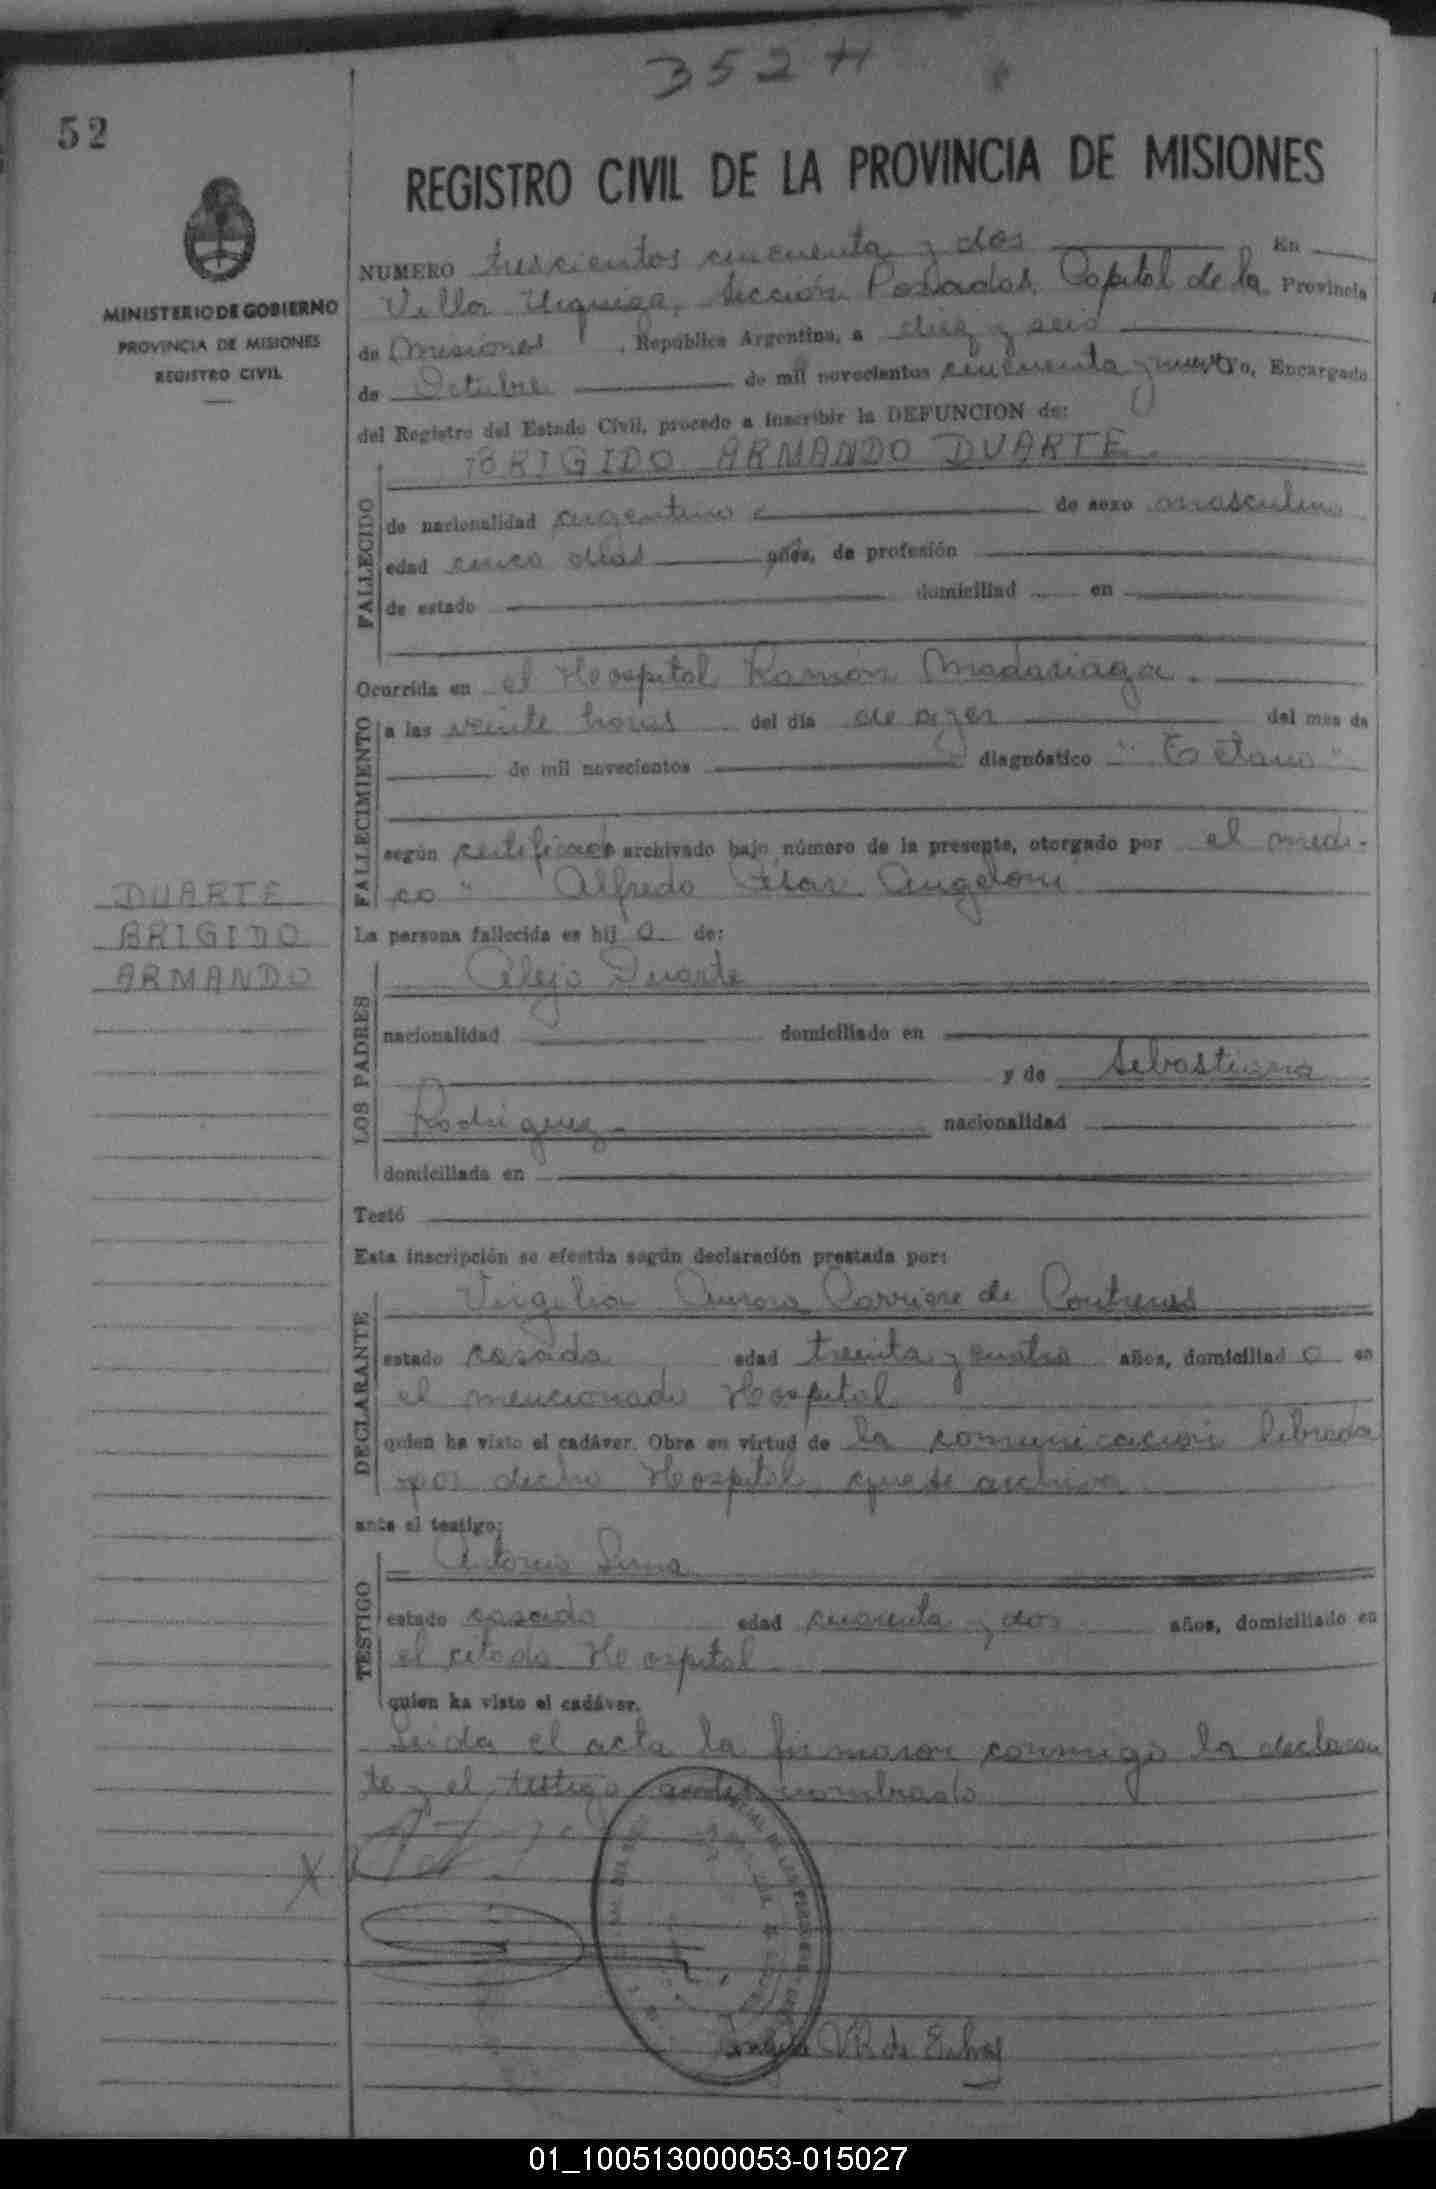 352 H
52
REGISTRO CIVIL DE LA PROVINCIA DE MISIONES
MINISTERIO DE GOBIERNO
PROVINCIA DE MISIONES
REGISTRO CIVIL
NUMERO trescientos cincuenta y dos En
Villa Urquiza, Sección Posadas, Capital de la Provincia
de Misiones, República Argentina, a diez y seis
de Octubre de mil novecientos cincuenta y nueve, Encargado
del Registro del Estado Civil, procedo a inscribir la DEFUNCION de:
BRIGIDO ARMANDO DUARTE
FALLECIDO
de nacionalidad argentino de sexo masculino
edad cinco días años, de profesión
de estado domiciliad en
Ocurrida en el Hospital Ramón Madariaga.
FALLECIMIENTO
a las veinte horas del día de ayer del mes de
de mil novecientos diagnóstico "Tétano"
según certificado archivado bajo número de la presente, otorgado por el medi-
co" Alfredo César Angeloni
DUARTE
BRIGIDO
ARMANDO
La persona fallecida es hijo de:
LOS PADRES
Alejo Duarte
nacionalidad domiciliado en
y de Sebastiana
Rodriguez nacionalidad
domiciliada en
Testó
Esta inscripción se efectúa según declaración prestada por:
DECLARANTE
Virgilia Aurora Carriere de Contreras
estado casada edad treinta y cuatro años, domiciliad a en
el mencionado Hospital
quien ha visto el cadáver. Obra en virtud de la comunicación librada
por dicho Hospital que se archiva
ante el testigo:
TESTIGO
Antonio
estado casado edad cuarenta y dos años, domiciliado en
el citado Hospital
quien ha visto el cadáver.
Leída el acta la firmaron conmigo la declaran
te y el testigo antes nombrado
X
V R de
01_100513000053-015027